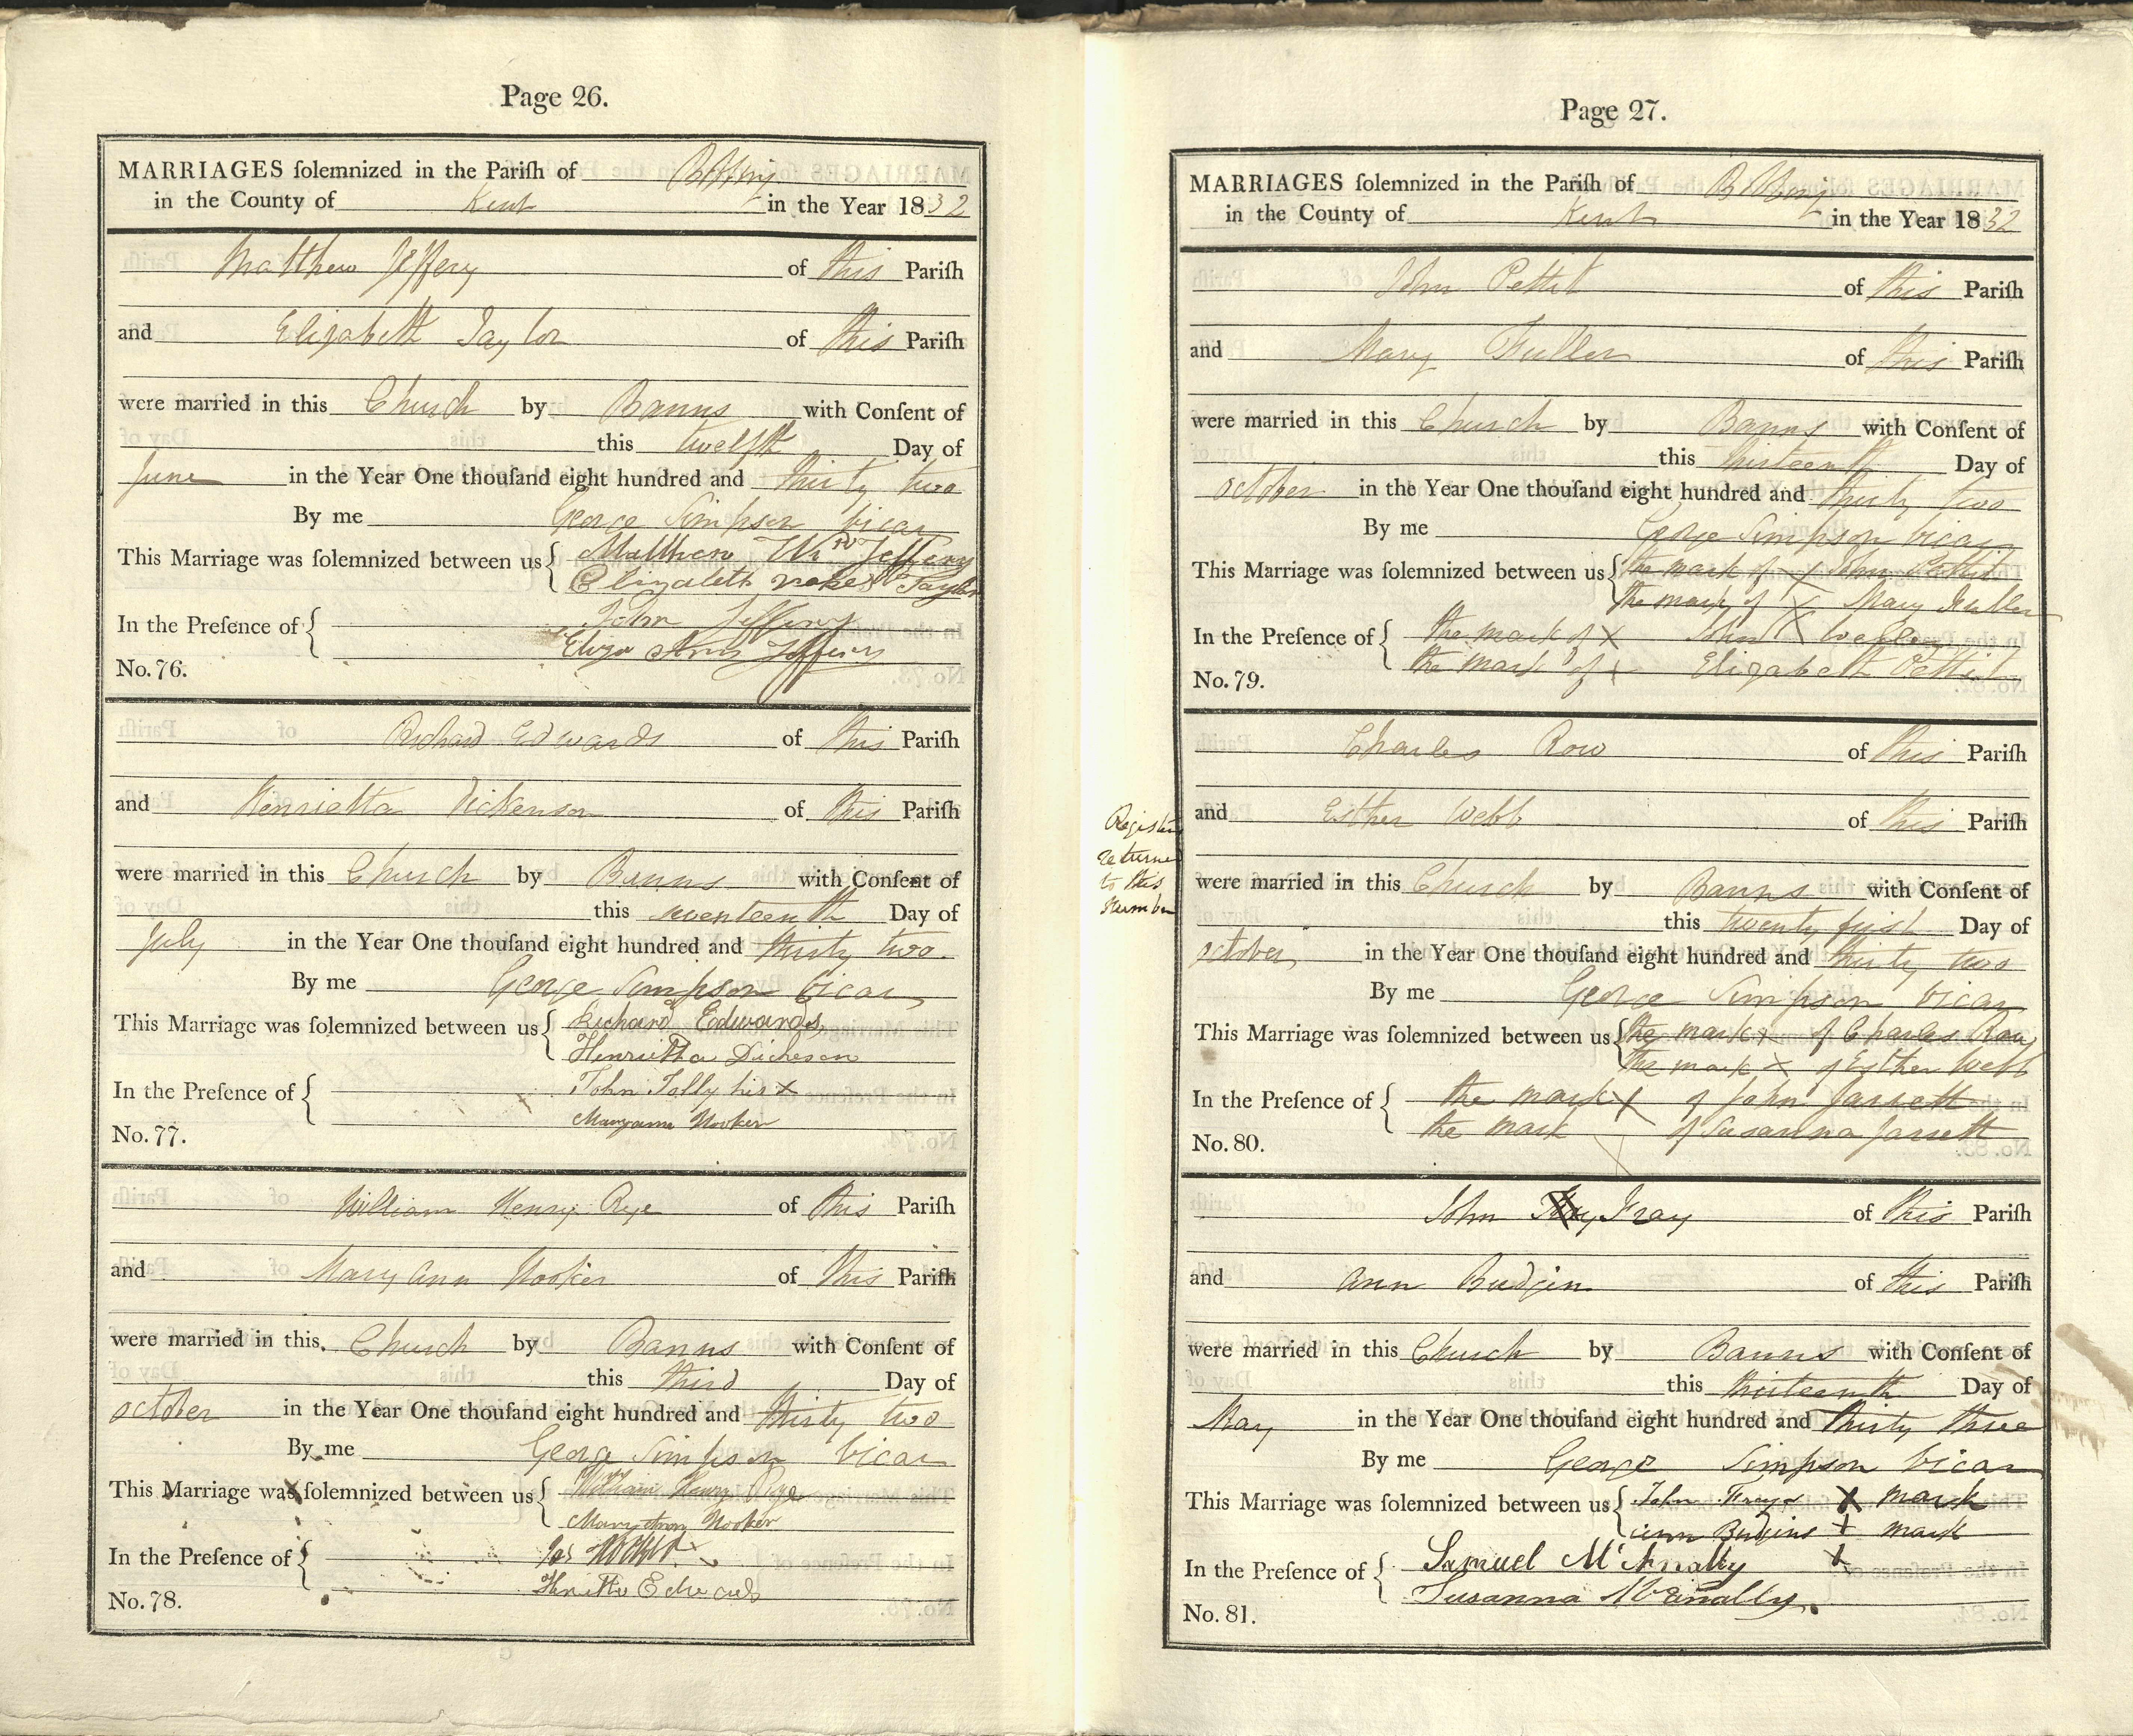 Page 26.
MARRIAGES ſolemnized in the Pariſh of Bobbing
in the County of Kent in the Year 1832
Matthew Jeffery of this Pariſh
and Elizabeth Taylor of this Pariſh
were married in this Church by Banns with Conſent of
this twelfth Day of
June in the Year One thouſand eight hundred and thirty two
By me George Simpson Vicar
This Marriage was ſolemnized between us { Matthew Wm Jeffery
Elizabeth Taylor
In the Preſence of { John Jeffery
Eliza Ann Jeffery
No. 76.
Richard Edwards of this Pariſh
and Henrietta Dickenson of this Pariſh
were married in this Church by Banns with Conſent of
this seventeenth Day of
July in the Year One thouſand eight hundred and thirty two
By me George Simpson Vicar
This Marriage was ſolemnized between us { Richard Edwards
Henrietta Dickeson
In the Preſence of { John Jolly his X
Maryann Hooker
No. 77.
William Henry Rye of this Pariſh
and Mary Ann Hooker of this Pariſh
were married in this Church by Banns with Conſent of
this third Day of
October in the Year One thouſand eight hundred and thirty two
By me George Simpson Vicar
This Marriage was ſolemnized between us { William Henry Rye
Mary Ann Hooker
In the Preſence of {
Edwards
No. 78.
Page 27.
MARRIAGES ſolemnized in the Pariſh of Bobbing
in the County of Kent in the Year 1832
John Pettit of this Pariſh
and Mary Fuller of this Pariſh
were married in this Church by Banns with Conſent of
this thirteenth Day of
October in the Year One thouſand eight hundred and thirty two
By me George Simpson Vicar
This Marriage was ſolemnized between us { the mark of X John Pettit
the mark of X Mary Fuller
In the Preſence of { the mark of X John X
the mark of X Elizabeth Pettit
No. 79.
Charles Row of this Pariſh
and Esther Webb of this Pariſh
Register
returned
to this
Number
were married in this Church by Banns with Conſent of
this twenty first Day of
October in the Year One thouſand eight hundred and thirty two
By me George Simpson Vicar
This Marriage was ſolemnized between us { the mark X of Charles Row
the mark X of Esther Webb
In the Preſence of { the mark X of John Jarrett
the mark X of Susanna Jarrett
No. 80.
John Fray of this Pariſh
and Ann Budgin of this Pariſh
were married in this Church by Banns with Conſent of
this thirteenth Day of
May in the Year One thouſand eight hundred and thirty three
By me George Simpson Vicar
This Marriage was ſolemnized between us { John Frays X mark
Ann Budgins X mark
In the Preſence of { Samuel McAnally X
Susanna McAnally
No. 81.